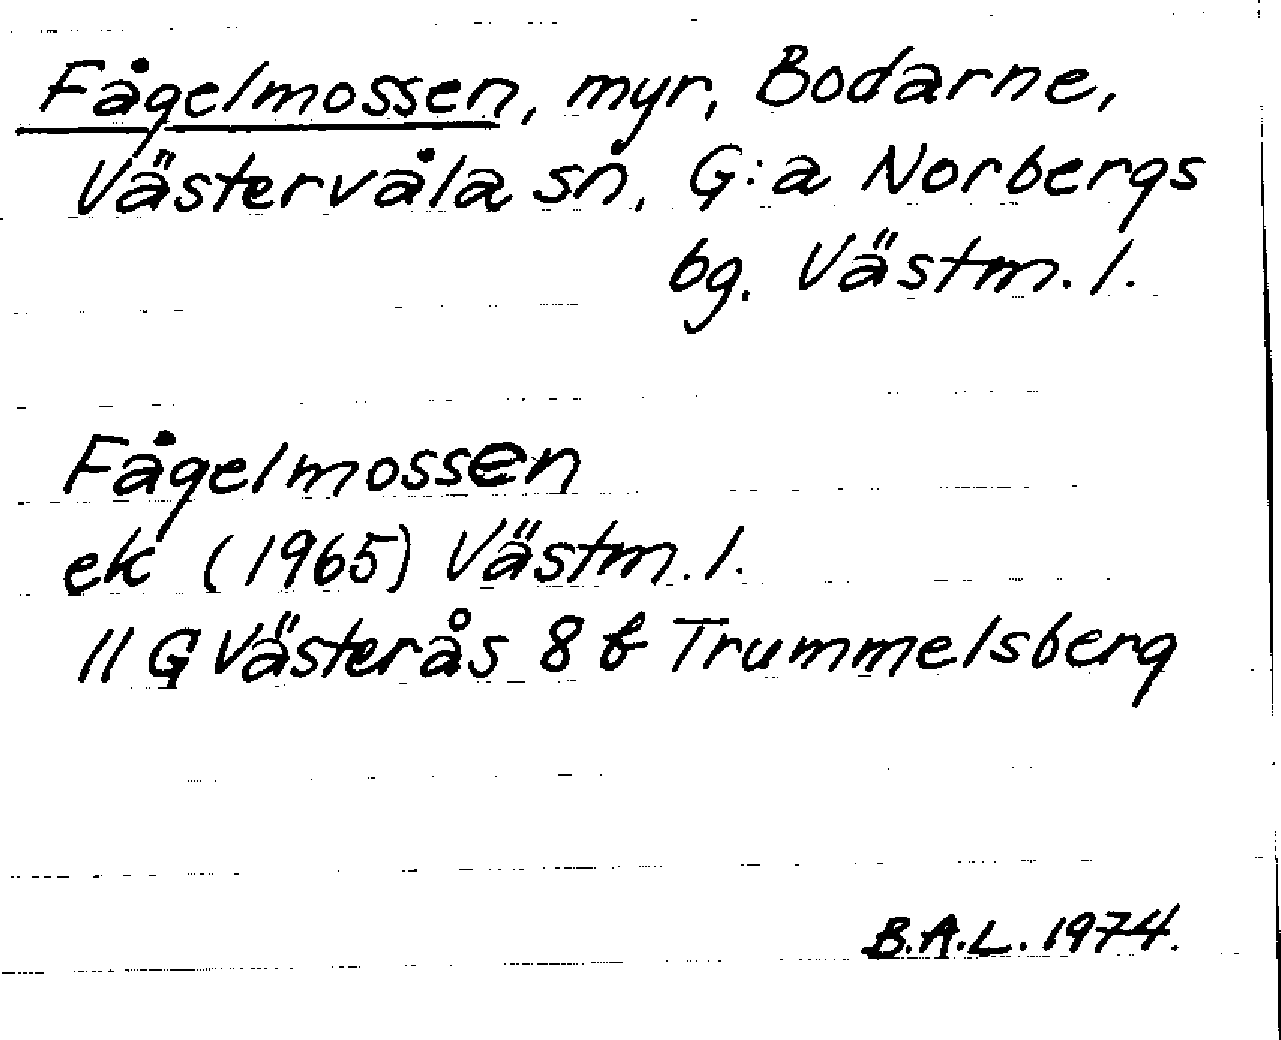 Fågelmossen, myr, Bodarne,
Västervåla sn, G:a Norbergs
bg. Västm. l.
Fågelmossen
ek (1965) Västm. l.
11 G Västerås 8 b Trummelsberg
B.A.L. 1974.